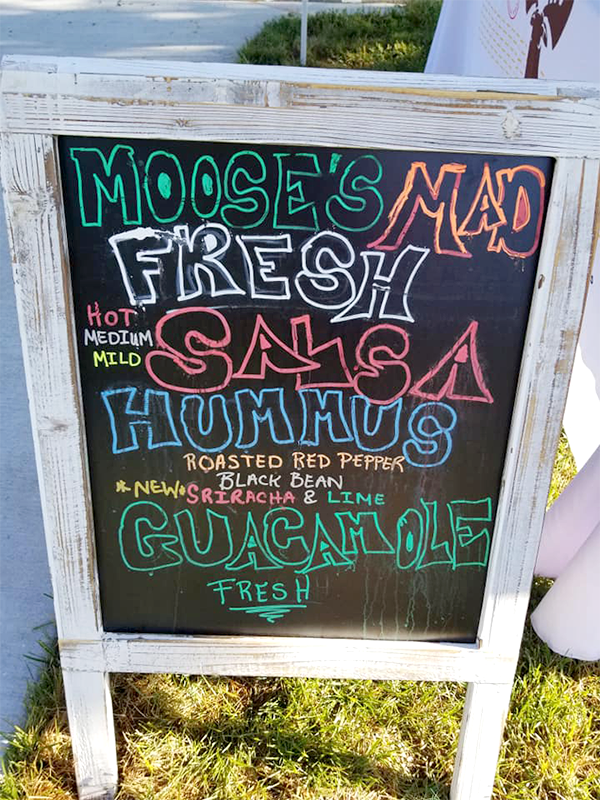 MOOSE'S MAD
FRESH
HOT
MEDIUM
MILD
SALSA
HUMMUS
ROASTED RED PEPPER
BLACK BEAN
*NEW* SRIRACHA & LIME
GUACAMOLE
FRESH